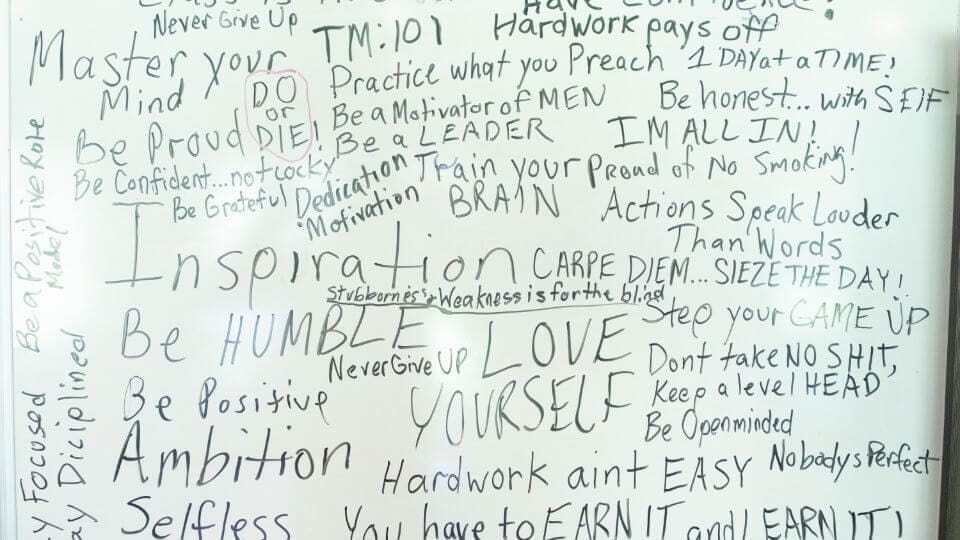 Never Give Up
Hardwork pays off
TM:101
Master your
Mind
DO
or
DIE!
Practice what you Preach
1 DAY at a TIME!
Be a Motivator of MEN
Be honest... with SElF
Be Proud
Be a LEADER
IM ALL IN!!
Be Confident...not cocky
Train your
BRAIN
Proud of No Smoking!
Be Grateful
Dedication
Motivation
Actions Speak Louder
Than Words
Inspiration
CARPE DIEM... SIEZE THE DAY!
Stubbornes's + Weakness is for the blind
Be HUMBLE
LOVE
YOURSELF
Step your GAME UP
Never Give UP
Dont take NO SHIT,
Keep a level HEAD
Be Positive
Be Openminded
Ambition
Hardwork aint EASY
Nobodys Perfect
Selfless
You have to EARN IT and LEARN IT!
Be a Positive Role
Model
Focused
Diciplined